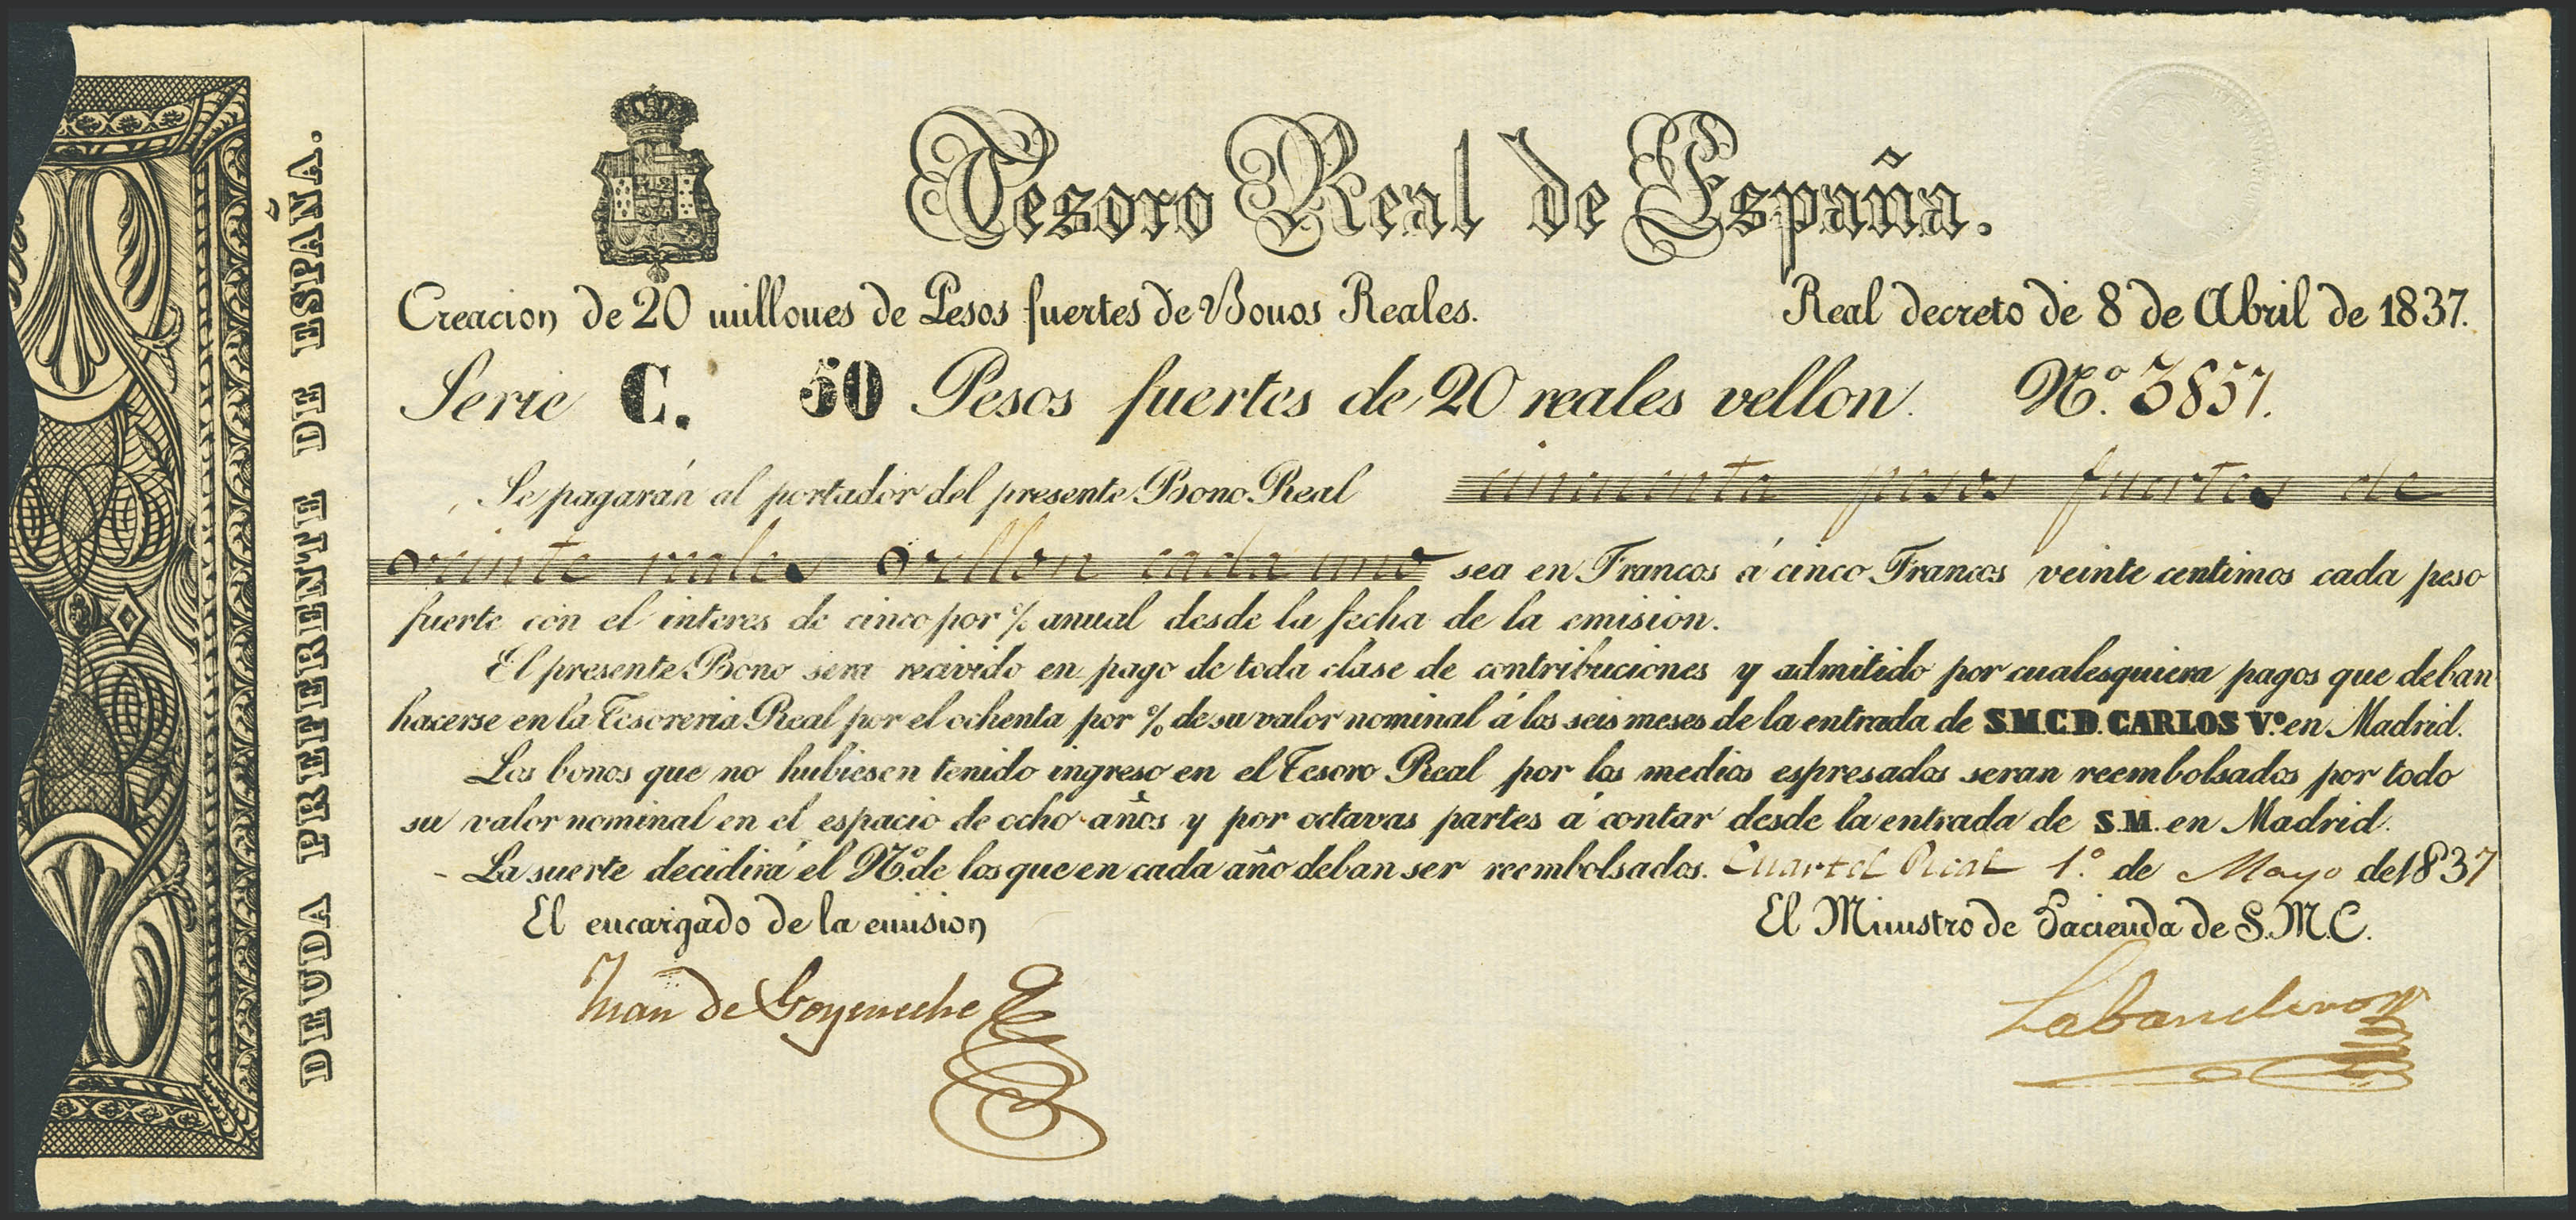 DEUDA PREFERENTE DE ESPAÑA.
Tesoro Real de España.
Creacion de 20 millones de Pesos fuertes de Bonos Reales. Real decreto de 8 de Abril de 1837.
Serie C. 50 Pesos fuertes de 20 reales vellon. Nº. 3857.
Se pagarán al portador del presente Bono Real cincuenta pesos fuertes de
veinte reales vellon cada uno sea en Francos á cinco Francos veinte centimos cada peso
fuerte con el interes de cinco por % anual desde la fecha de la emision.
El presente Bono sera recivido en pago de toda clase de contribuciones y admitido por cualesquiera pagos que deban
hacerse en la Tesoreria Real por el ochenta por % de su valor nominal á los seis meses de la entrada de S.M.C.D. CARLOS Vº. en Madrid.
Los bonos que no hubiesen tenido ingreso en el Tesoro Real por los medios espresados seran reembolsados por todo
su valor nominal en el espacio de ocho años y por octavas partes á contar desde la entrada de S.M. en Madrid.
- La suerte decidirá el Nº. de los que en cada año deban ser reembolsados. Cuartel Real 1º. de Mayo de 1837
El encargado de la emision El Ministro de Hacienda de S.M.C.
Juan de Goyeneche Labandero